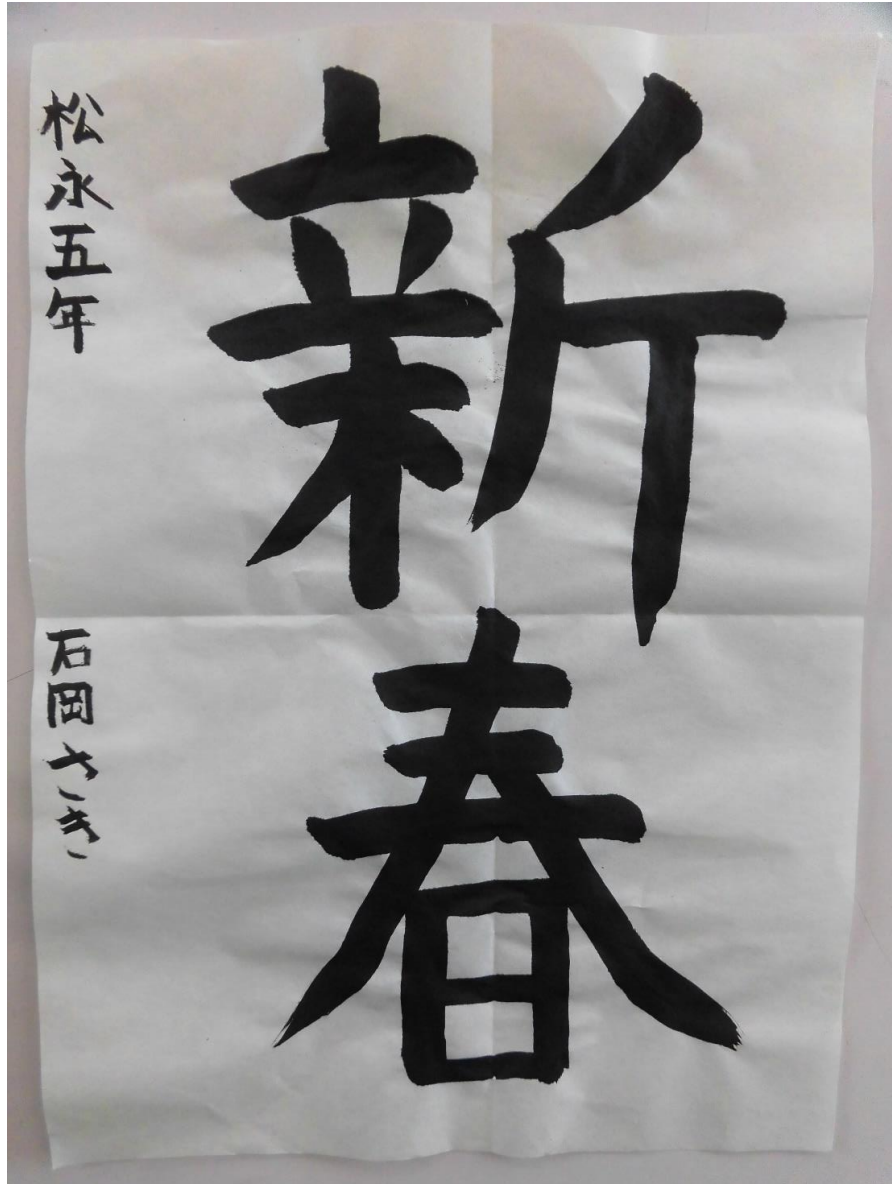 新春
松永五年
石岡さき